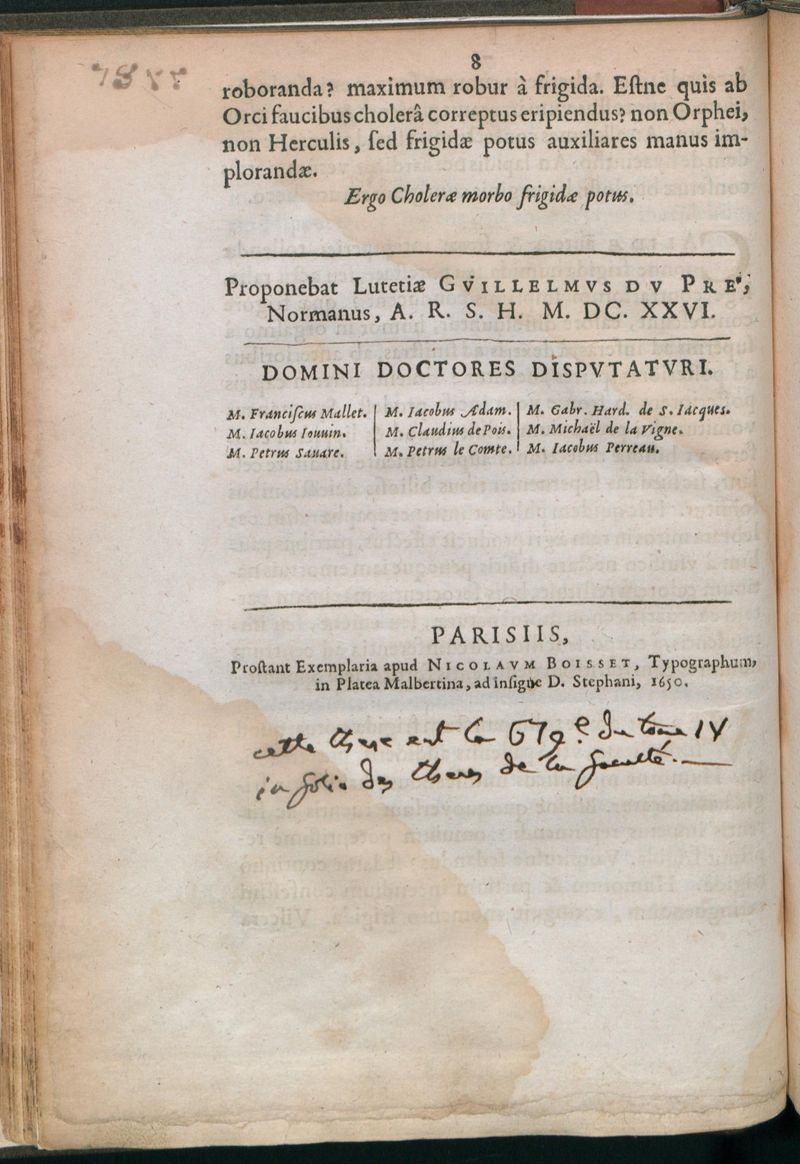 8
roboranda? maximum robur à frigida. Eſtne quis ab
Orci faucibus cholerâ correptus eripiendus? non Orphei,
non Herculis, ſed frigidæ potus auxiliares manus im-
plorandæ.
Ergo Choleræ morbo frigidæ potus.
Proponebat Lutetiæ GVILLELMVS DV PRE',
Normanus, A. R. S. H. M. DC. XXVI.
DOMINI DOCTORES DISPVTATVRI.
M. Franciſcus Mallet. M. Iacobus Adam. M. Gabr. Hard. de S. Iacques.
M. Iacobus Iouuin. M. Claudius de Pois. M. Michaël de la Vigne.
M. Petrus Sauare. M. Petrus le Comte. M. Iacobus Perreau.
PARISIIS,
Proſtant Exemplaria apud NICOLAVM BOISSET, Typographum,
in Platea Malbertina, ad inſigne D. Stephani, 1650.
cette these est la 679e du tome IV
in folio des theses de la faculté.